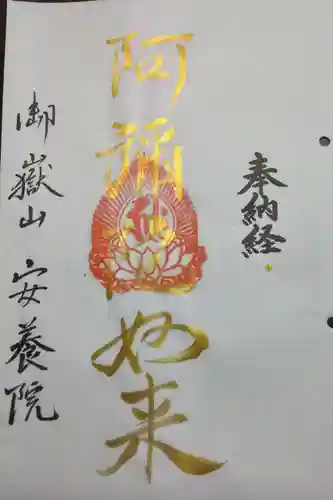 奉納経
阿彌陀如来
御嶽山 安養院